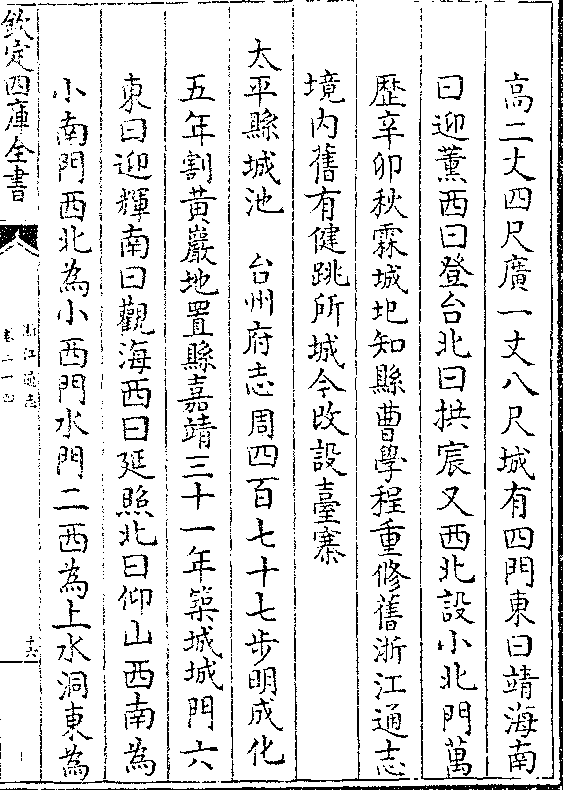 高二丈四尺廣一丈八尺城有四門東曰靖海南
曰迎薰西曰登台北曰拱宸又西北設小北門萬
歴辛卯秋霖城圯知縣曹學程重修舊浙江通志
境內舊有健跳所城今改設臺寨
太平縣城池　台州府志周四百七十七步明成化
五年割黃巖地置縣嘉靖三十一年築城城門六
東曰迎輝南曰觀海西曰延照北曰仰山西南為
小南門西北為小西門水門二西為上水洞東為
欽定四庫全書
浙江通志
卷二十四
十六